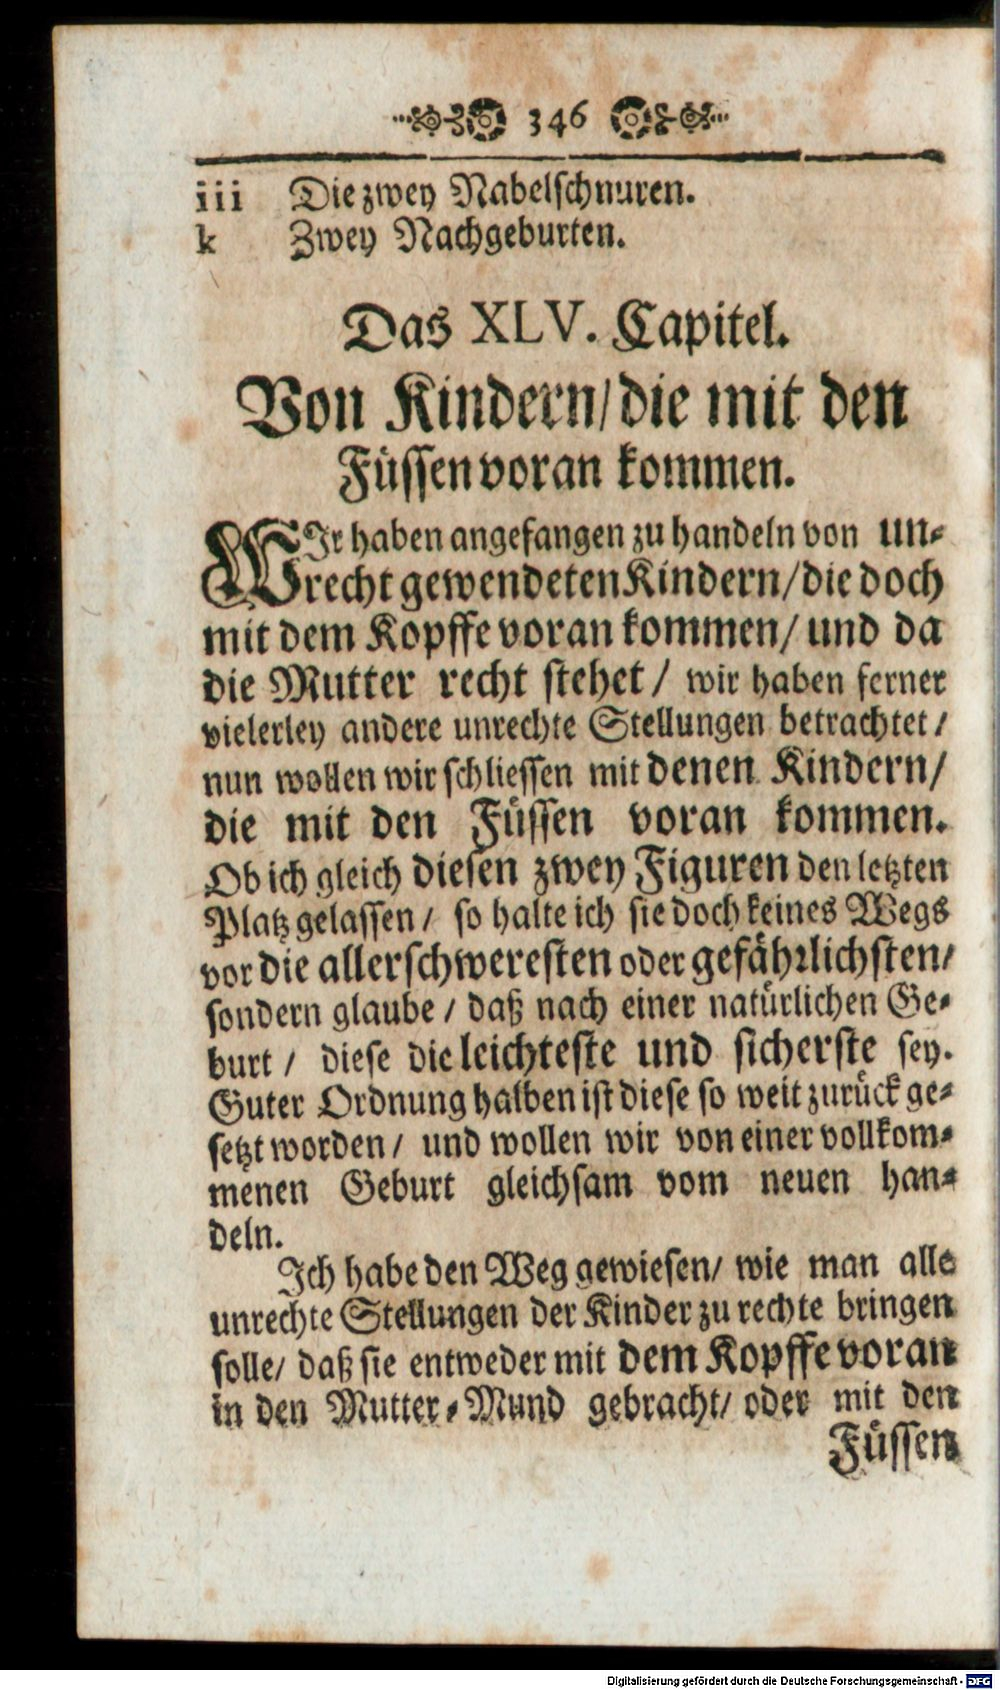 346
iii Die zwey Nabelschnuren.
k Zwey Nachgeburten.
Das XLV. Capitel.
Von Kindern/ die mit den
Füssen voran kommen.
WIr haben angefangen zu handeln von un-
recht gewendeten Kindern/ die doch
mit dem Kopffe voran kommen/ und da
die Mutter recht stehet / wir haben ferner
vielerley andere unrechte Stellungen betrachtet /
nun wollen wir schliessen mit denen Kindern/
die mit den Füssen voran kommen.
Ob ich gleich diesen zwey Figuren den letzten
Platz gelassen / so halte ich sie doch keines Wegs
vor die allerschweresten oder gefährlichsten/
sondern glaube / daß nach einer natürlichen Ge-
burt / diese die leichteste und sicherste sey.
Guter Ordnung halben ist diese so weit zurück ge-
setzt worden / und wollen wir von einer vollkom-
menen Geburt gleichsam vom neuen han-
deln.
Ich habe den Weg gewiesen/ wie man alle
unrechte Stellungen der Kinder zu rechte bringen
solle/ daß sie entweder mit dem Kopffe voran
in den Mutter-Mund gebracht/ oder mit den
Füssen
Digitalisierung gefördert durch die Deutsche Forschungsgemeinschaft - DFG